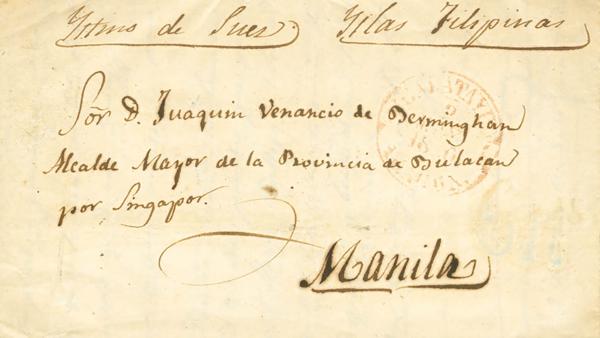 Ystmo de Sues Yslas Filipinas
Sor D. Juaquin Venancio de Berminghan
Alcalde Mayor de la Provincia de Bulacan
por Singapor.
Manila